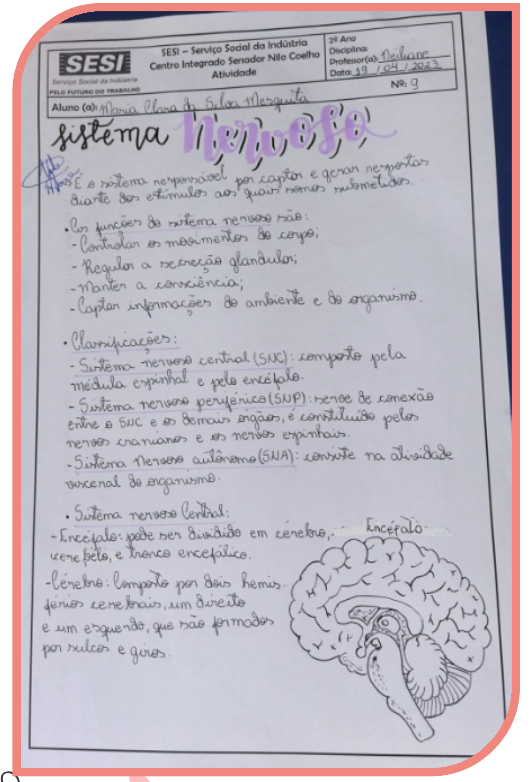 SESI
Serviço Social da Indústria
PELO FUTURO DO TRABALHO
SESI – Serviço Social da Indústria
Centro Integrado Senador Nilo Coelho
Atividade
2º Ano
Disciplina:
Professor(a): Neiliane
Data: 19 / 04 / 2023
Aluno (a): Maria Clara da Silva Mesquita
Nº: 9
Sistema Nervoso
É o sistema responsável por captar e gerar respostas
diante dos estímulos aos quais somos submetidos.
• As funções do sistema nervoso são:
- Controlar os movimentos do corpo;
- Regular a secreção glandular;
- Manter a consciência;
- Captar informações do ambiente e do organismo.
• Classificações:
- Sistema nervoso central (SNC): composto pela
medula espinhal e pelo encéfalo.
- Sistema nervoso periférico (SNP): serve de conexão
entre o SNC e os demais órgãos, é constituído pelos
nervos cranianos e os nervos espinhais.
- Sistema Nervoso autônomo (SNA): consiste na atividade
visceral do organismo.
• Sistema nervoso Central:
- Encéfalo: pode ser dividido em cérebro,
cerebelo, e tronco encefálico.
Encéfalo
- Cérebro: Composto por dois hemis
férios cerebrais, um direito
e um esquerdo, que são formados
por sulcos e giros.